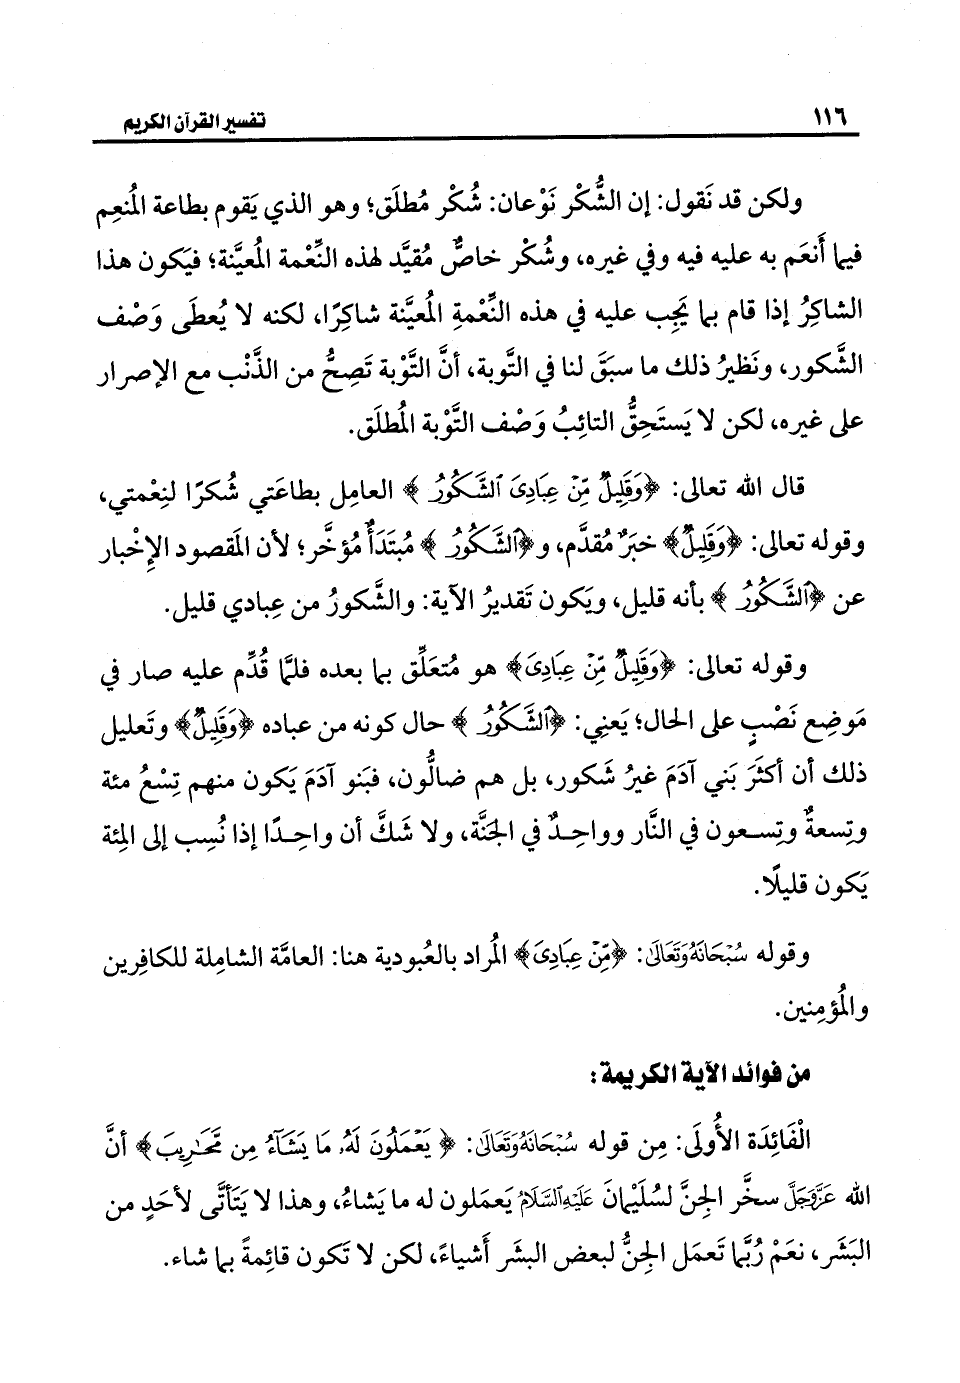 ١١٦
تفسير القرآن الكريم
ولكن قد نَقول: إن الشُّكْر نَوْعان: شُكْر مُطلَق؛ وهو الذي يَقوم بطاعة المُنعِم
فيما أَنعَم به عليه فيه وفي غيره، وشُكْر خاصٌّ مُقيَّد لهذه النِّعْمة المُعيَّنة؛ فيَكون هذا
الشاكِرُ إذا قام بما يَجِب عليه في هذه النِّعْمةِ المُعيَّنة شاكِرًا، لكنه لا يُعطَى وَصْف
الشَّكور، ونَظيرُ ذلك ما سبَقَ لنا في التَّوبة، أنَّ التَّوْبة تَصِحُّ من الذَّنْب مع الإصرار
على غيره، لكن لا يَستَحِقُّ التائِبُ وَصْف التَّوْبة المُطلَق.
قال الله تعالى: ﴿وَقَلِيلٌ مِّنْ عِبَادِىَ ٱلشَّكُورُ﴾ العامِل بطاعَتي شُكرًا لنِعْمتي،
وقوله تعالى: ﴿وَقَلِيلٌ﴾ خبَرٌ مُقدَّم، و﴿ٱلشَّكُورُ﴾ مُبتَدَأٌ مُؤخَّر؛ لأن المَقصود الإِخْبار
عن ﴿ٱلشَّكُورُ﴾ بأنه قليل، ويَكون تَقديرُ الآية: والشَّكورُ من عِبادي قليل.
وقوله تعالى: ﴿وَقَلِيلٌ مِّنْ عِبَادِىَ﴾ هو مُتعَلِّق بما بعده فلمَّا قُدِّم عليه صار في
مَوضِع نَصْبٍ على الحال؛ يَعنِي: ﴿ٱلشَّكُورُ﴾ حال كونه من عباده ﴿وَقَلِيلٌ﴾ وتَعليل
ذلك أن أكثَرَ بَني آدَمَ غيرُ شَكور، بل هم ضالُّون، فبَنو آدَمَ يَكون منهم تِسْعُ مئة
وتِسعةٌ وتِسعون في النَّار وواحِدٌ في الجَنَّة، ولا شَكَّ أن واحِدًا إذا نُسِب إلى المِئة
يَكون قليلًا.
وقوله سُبْحَانَهُ وَتَعَالَى: ﴿مِّنْ عِبَادِىَ﴾ المُراد بالعُبودية هنا: العامَّة الشامِلة للكافِرين
والمُؤمِنين.
من فوائد الآية الكريمة:
الْفَائِدَة الأُولَى: مِن قوله سُبْحَانَهُ وَتَعَالَى: ﴿يَعْمَلُونَ لَهُۥ مَا يَشَآءُ مِن مَّحَٰرِيبَ﴾ أنَّ
الله عَزَّوَجَلَّ سخَّر الجِنَّ لسُلَيْمانَ عَلَيْهِ ٱلسَّلَامُ يَعمَلون له ما يَشاءُ، وهذا لا يَتَأتَّى لأحَدٍ من
البَشَر، نعَمْ رُبَّما تَعمَل الجِنُّ لبعض البشَر أَشياءً، لكن لا تَكون قائِمةً بما شاء.